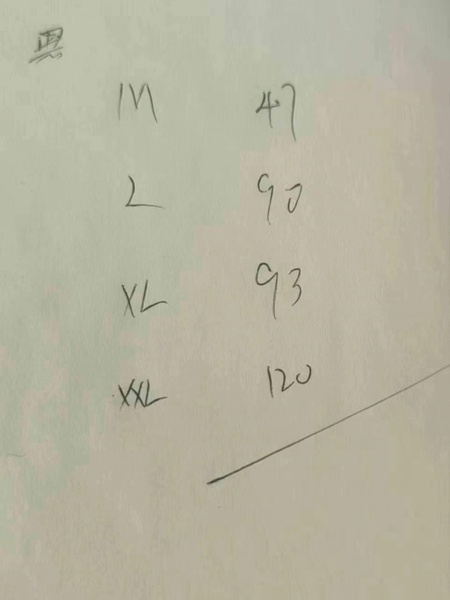 黑
M 47
L 90
XL 93
XXL 120